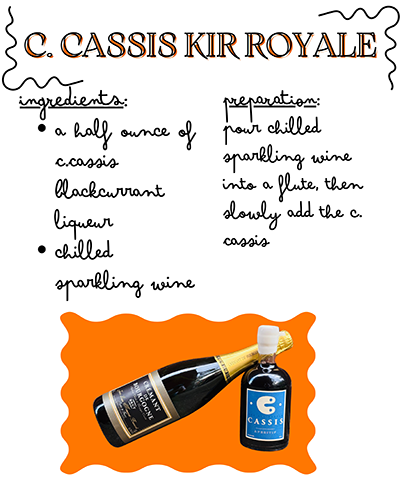 C. CASSIS KIR ROYALE
ingredients:
• a half ounce of
c.cassis
blackcurrant
liqueur
• chilled
sparkling wine
preparation:
pour chilled
sparkling wine
into a flute, then
slowly add the c.
cassis
CREMANT
DE
BOURGOGNE
C
CASSIS
APERITIF